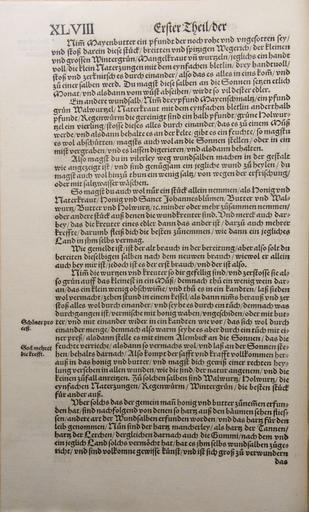 XLVIII Erster Theil/der
Nim̃ Mayenbutter ein pfundt der noch rohe vnd vngesotten sey/
vnd stoß darein diese stück/ breitten vnd spitzigen Wegerich/ der kleinen
vnd grossen Wintergrün/ Mangelkraut vñ wurtzeln/ jeglichs ein handt
voll/ die klein Naterzungen mit dem eynfachen bletlin/ drey handtvoll/
stoß vnd zerknitsch es durch einander/ also das es alles in eins kom̃/ vnd
zu einer salben werd. Du magst dieselben an die Sonnen setzen etlich
Monat/ vnd alsdann vom wüst absäubern/ wirdt so vil dester edler.
Ein andere wundsalb/ Nim̃ drey pfund Mayenschmaltz/ ein pfund
grün Walwurtzel/ Naterkraut mit dem eynfachen bletlin anderthalb
pfundt/ Regenwürm die gereinigt sind ein halb pfundt/ grüne Holwur-
tzel ein vierling/ stosse dieses alles durch einander/ das es zu einem Müß
werde/ vnd alsdann behalt es an der kelte/ gibt es ein feuchte/ so magstu
es wol abschütten/ magsts auch wol an die Sonnen stellen/ oder in ein
mist vergraben/ vnd es lassen digerieren/ vnd alsdann behalten.
Also magst du in vilerley weg wundsalben machen in der gestalt
wie angezeigt ist/ vnd sind genůgsam ein jegliche wund zu heylen/ du
magst auch wol hinzu thun ein wenig saltz/ von wegen der erfrischung/
oder mit saltzwasser wäschen.
So magst du auch wol nür ein stück allein nemmen/ als Honig vnd
Naterkraut/ Honig vnd Sanct Johannesblůmen/ Butter vnd Wal-
wurtz/ Butter vnd Holwurtz/ rc. minder oder mehr zusammen nemmen/
oder andere stück auß denen die wundkreuter sind. Vnd merck auch dar-
bey/ das die kreuter eines edler dann das ander ist/ darzu auch mehrer
kreffte/ darumb fleiß dich die besten zůnemmen/ wie dann ein jegliches
Land in ihm selbs vermag.
Wie gemeldt ist/ ist der alt brauch in der bereitung/ aber also solt du
bereiten dieselbigen salben nach dem neuwen brauch/ wiewol er allein
auch bey mir ist/ jedoch ist es der erst brauch/ vnd der ist also.
Nim̃ die wurtzen vnd kreuter so dir gefellig sind/ vnd zerstosse sie al-
so grün auff das kleinest in ein Müß/ demnach thu ein wenig wein dar-
an/ das ein klein wenig obschwim̃e/ vnd thů es in ein kandten/ laß sieden
wol vermacht/ zehen stund in einem kessel/ als dann nim̃s herauß vnd zer-
stoß alles wol durch einander/ vnd seyhe es durch ein tůch/ demnach was
durchgangen ist/ vermische mit honig wahen/ vngesotten/ oder mit but-
ter/ vnd mit einander wider in ein kandten wie vor/ das sich wol durch
einander menge/ demnach also warm seyhe es aber durch ein tůch mit ei-
ner preß/ alsdann stelle es mit einem Alembic an die Sonnen/ das die
feuchte verriecht/ alsdann so vermachs wol/ vnd laß an der Sonnen ste-
hen/ behalts darnach/ Also kompt der safft vnd krafft vollkommen her-
auß in das honig vnd butter/ vnd magst dich gentz einer rechten hey-
lung versehen in allen wunden/ wie die sind/ der natur angenem/ vnd die
keinen zůfall anzeigen. Zu solchen salben sind Walwurtz/ Holwurtz/ die
eynfachen Naterzungen/ Regenwürm/ Wintergrün/ die besten stück
für ander auß.
Vber solchs das der gemein mañ honig vnd butter zůnem̃en erfun-
den hat/ sind nachfolgend von denen so hartz auß den bäumen sehen flies-
sen/ andere art der Wundsalben erfunden worden/ vnd das hartz für den
leib genommen/ Nun sind der hartz mancherley/ als hartz der Tannen/
hartz der Lerchen/ dergleichen darnach auch die Gummi/ nach dem vnd
ein jeglich Land solchs vermöcht hat/ hat es ihm selbs wundsalben zůge-
richt/ vnd sind vollkomne gewisse künst/ vnd ist sich groß zů verwundern
das
Schöner pro
ceß.
Gut mehret
die krefft.